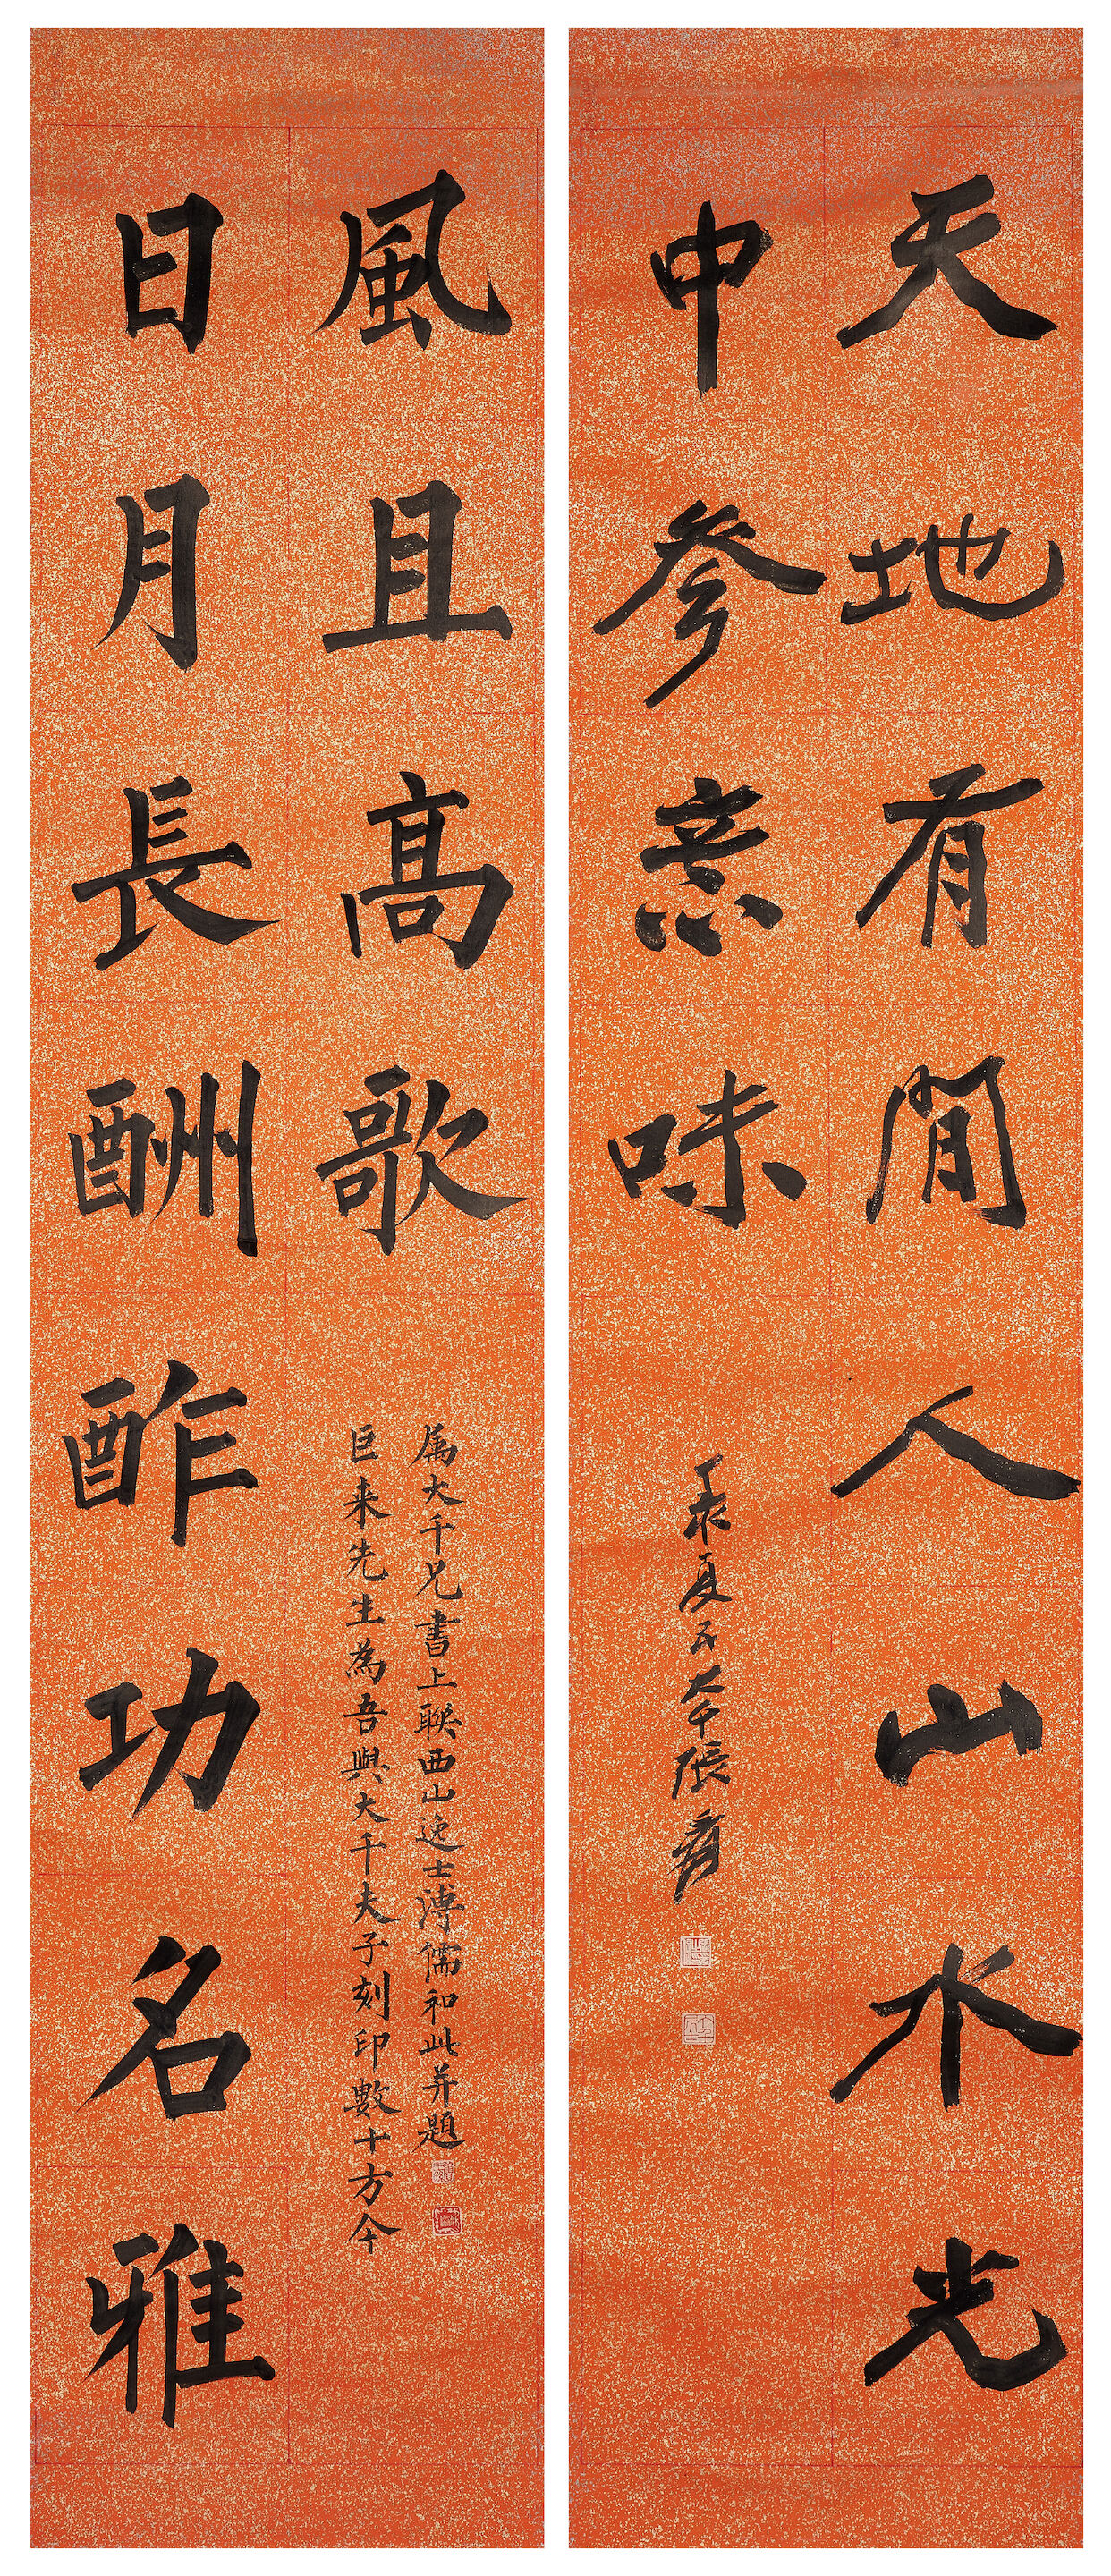 天地有閒人山水光
中參意味
丁亥夏五大千張爰
日月長酬酢功名雅
風且高歌
巨来先生為吾與大千夫子刻印數十方今
属大千兄書上聯西山逸士溥儒和此并題